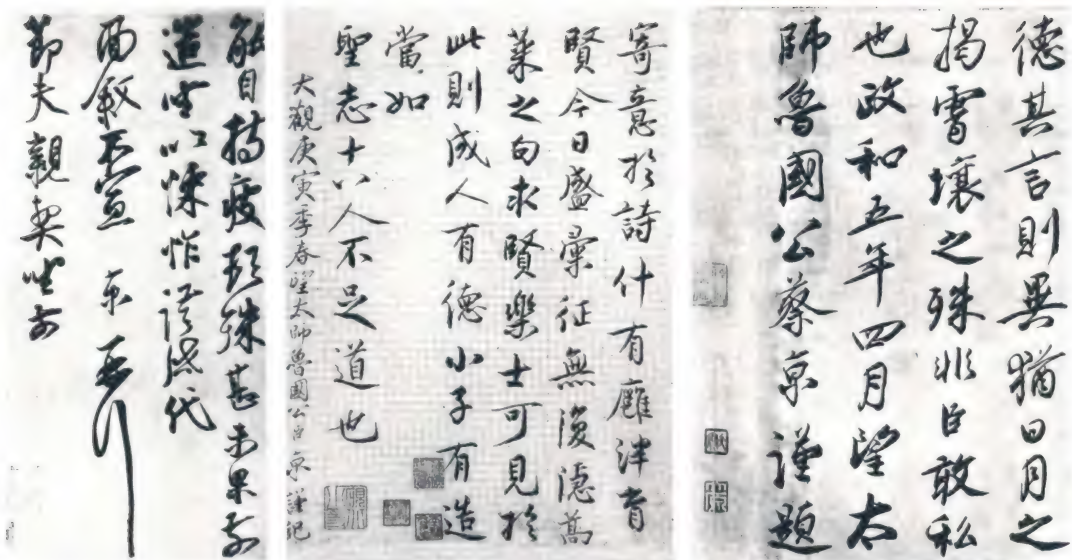 德其言則異猶日月之
揭霄壤之殊非臣敢私
也政和五年四月望太
師魯國公蔡京謹題
寄意於詩什有廱泮育
賢今日盛彙征無復隱蒿
萊之句求賢樂士可見於
此則成人有德小子有造
當如
聖志十八人不足道也
大觀庚寅季春望太師魯國公臣京謹記
能自持疲頓殊甚未果前
造坐以悚怍謹啟代
面敘不宣 京再拜
節夫親契坐前